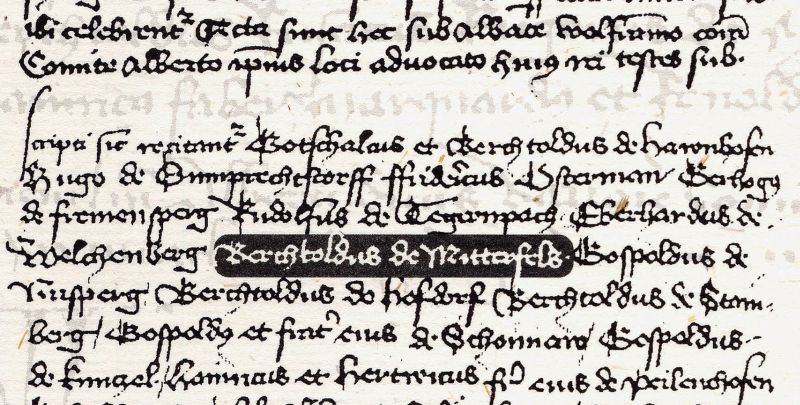 ibi celebrent᷑ Acta sunt hec sub Abbate Wolframo cora᷑
Comite Alberto ip̄ius loci advocato huiꝰ rei testes sub-
scripti sic recitant᷑ Gotschalcus et Berchtoldus de Haronhofen
Hugo de Dumprechtstorff ffridericus Osterman Gerhogꝰ
de firmensperg Rudolfus de Tegernpach Eberhardus de
Welchenberg Berchtoldus de Mitterfels Gospoldus de
Berchtoldus de Hofdorf Berchtoldus de Stain-
berg Gospoldꝰ et frat᷑ eius de Schonnaw Gospoldus
de kinczel Hainricus et Hertwicus fr̄ eius de Peilenchofen